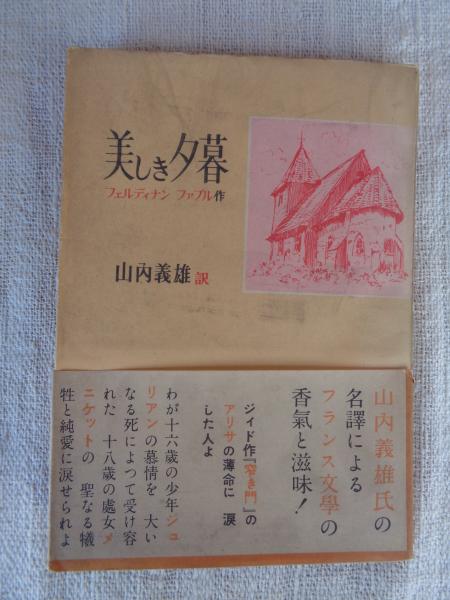 美しき夕暮
フェルディナン ファブル作
山内義雄 訳
山内義雄氏の
名譯による
フランス文學の
香氣と滋味!
ジイド作『窄き門』の
アリサの薄命に 涙
した人よ
わが十六歳の少年ジュ
リアンの慕情を 大い
なる死によつて受け容
れた 十八歳の處女メ
ニケットの 聖なる犠
牲と純愛に涙せられよ